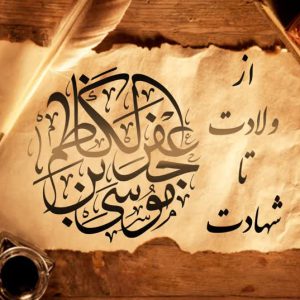 از
ولادت
تا
شهادت
موسی بن جعفر الکاظم